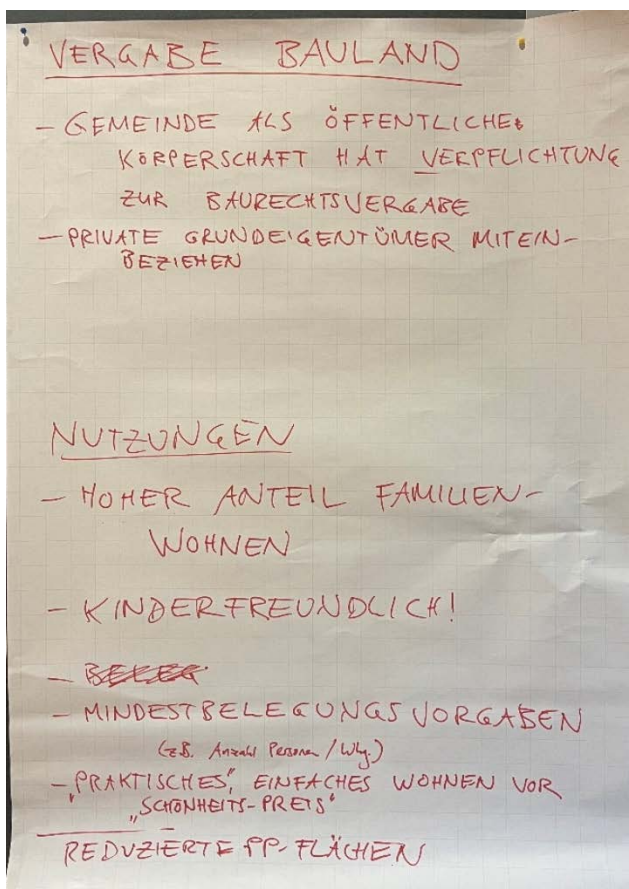 VERGABE BAULAND
- GEMEINDE ALS ÖFFENTLICHE
KÖRPERSCHAFT HAT VERPFLICHTUNG
ZUR BAURECHTSVERGABE
- PRIVATE GRUNDEIGENTÜMER MITEIN-
BEZIEHEN
NUTZUNGEN
- HOHER ANTEIL FAMILIEN-
WOHNEN
- KINDERFREUNDLICH!
-
- MINDESTBELEGUNGSVORGABEN
(z.B. Anzahl Personen / Whg.)
- „PRAKTISCHES", EINFACHES WOHNEN VOR
„SCHÖNHEITS-PREIS"
REDUZIERTE PP-FLÄCHEN